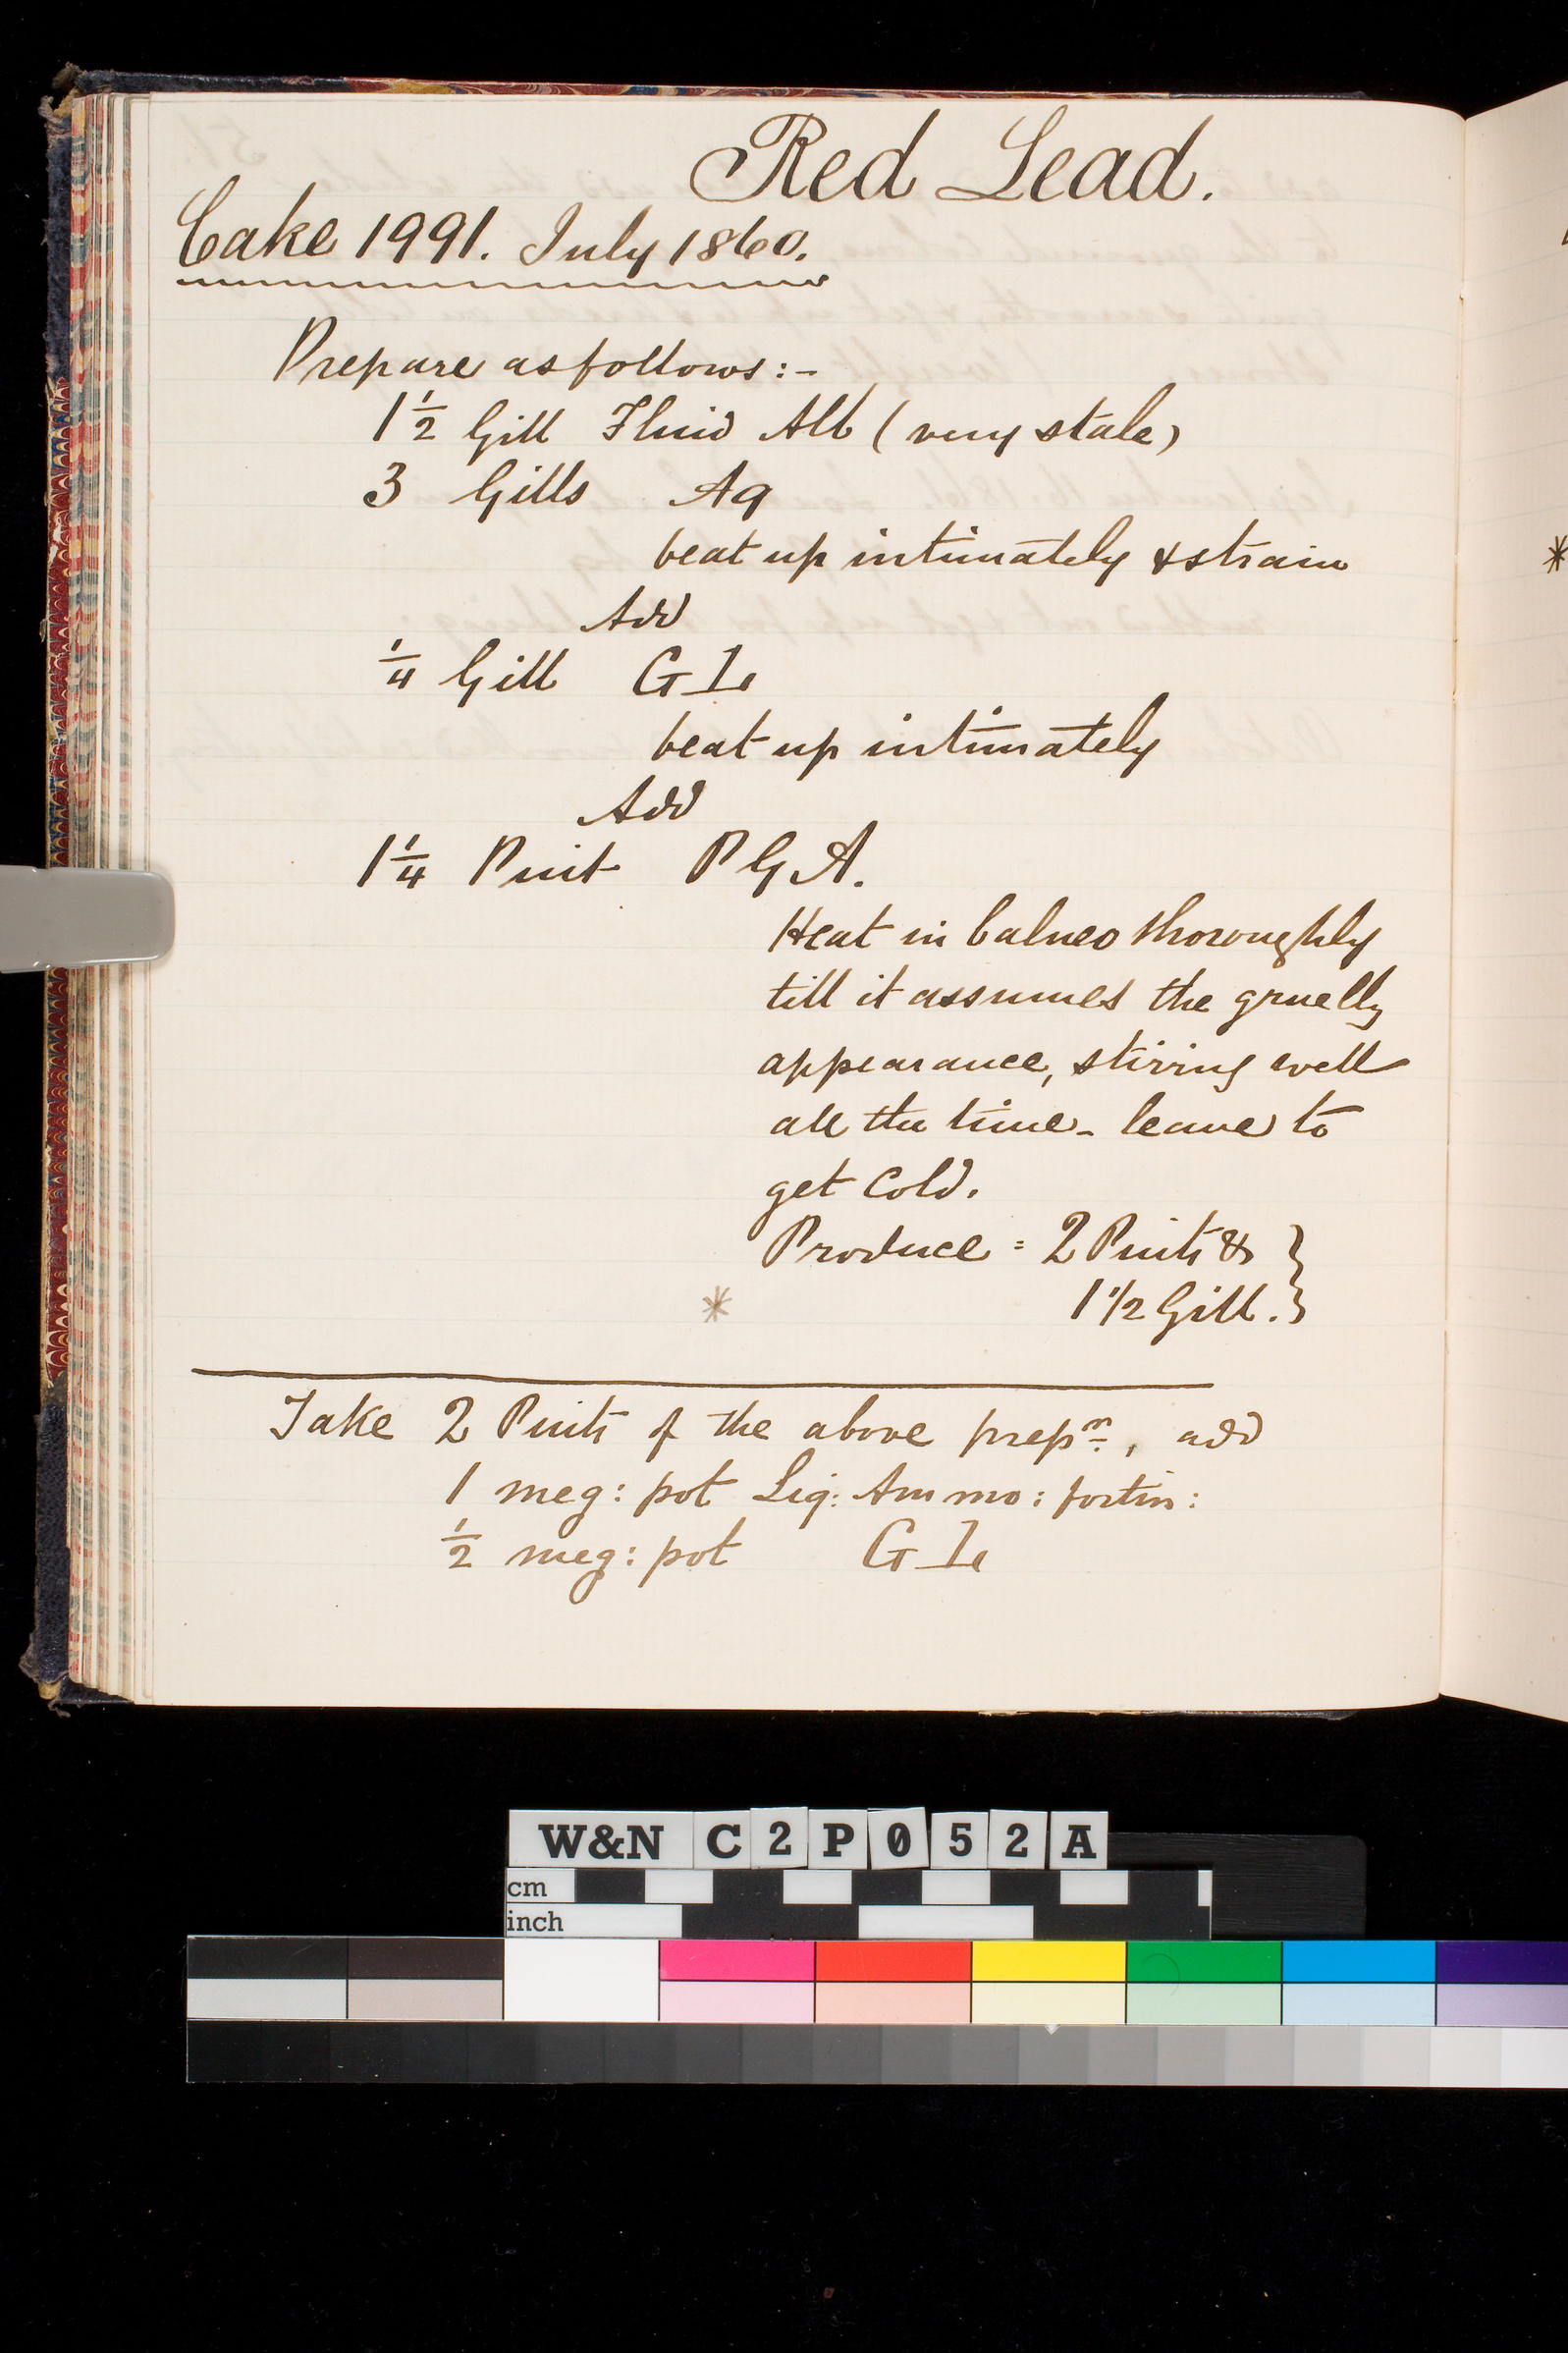 Red Lead.
Cake 1991. July 1860.
Prepare as follows:-
1 1/2 Gill Fluid Alb (very stale)
3 Gills Aq
beat up intimately & strain
Add
1/4 Gill G I
beat up intimately
Add
1 1/4 Pint P G A.
Heat in balneo thoroughly
till it assumes the gruelly
appearance, stirring well
all the time - leave to
get cold.
Produce = 2 Pints & }
* 1 1/2 Gill. }
Take 2 Pints of the above prepn., add
1 meg: pot Liq: Ammo: fortis:
1/2 meg: pot G I
*
W&N C2P052A
cm
inch